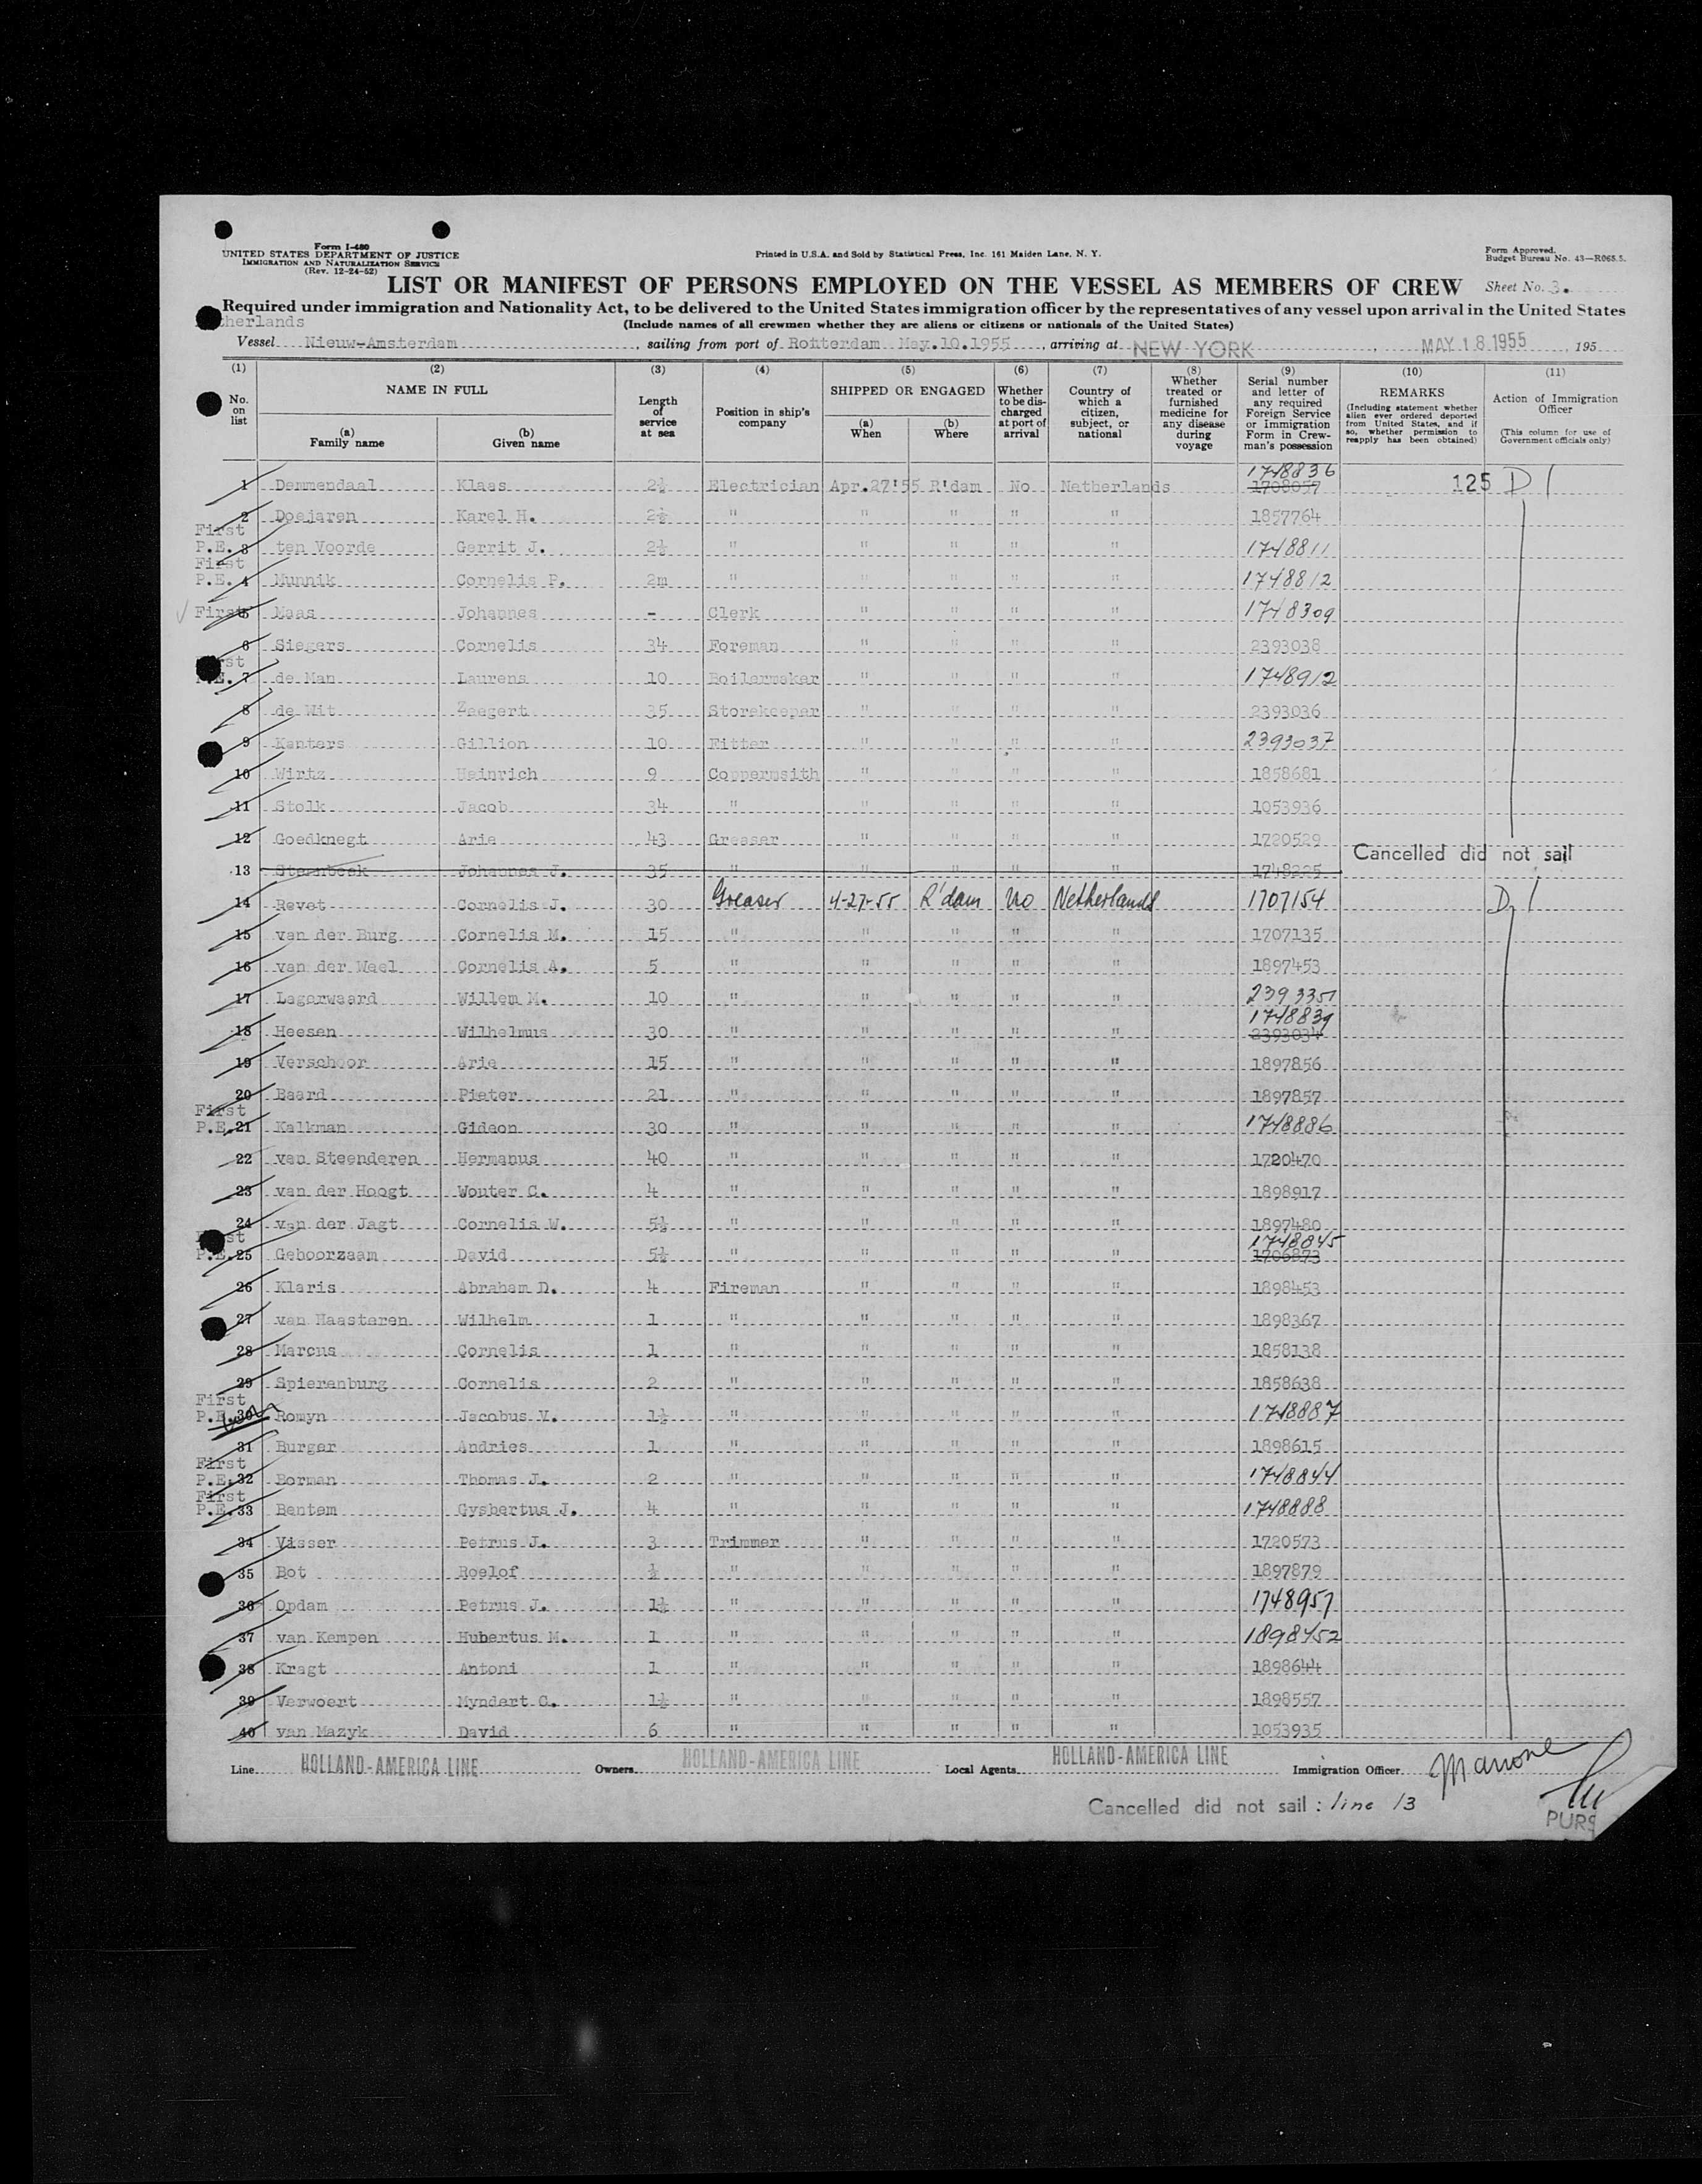 Form I-480
UNITED STATES DEPARTMENT OF JUSTICE
IMMIGRATION AND NATURALIZATION SERVICE
(Rev. 12-24-52)
Printed in U.S.A. and Sold by Statistical Press, Inc. 161 Maiden Lane, N. Y.
Form Approved.
Budget Bureau No. 43—R065.5.
LIST OR MANIFEST OF PERSONS EMPLOYED ON THE VESSEL AS MEMBERS OF CREW Sheet No. 3.
Required under immigration and Nationality Act, to be delivered to the United States immigration officer by the representatives of any vessel upon arrival in the United States
herlands (Include names of all crewmen whether they are aliens or citizens or nationals of the United States)
Vessel Nieuw-Amsterdam, sailing from port of Rotterdam May.10.1955, arriving at NEW YORK, MAY 18 1955, 195
(1) No. on list (2) NAME IN FULL (a) Family name (b) Given name (3) Length of service at sea (4) Position in ship's company (5) SHIPPED OR ENGAGED (a) When (b) Where (6) Whether to be discharged at port of arrival (7) Country of which a citizen, subject, or national (8) Whether treated or furnished medicine for any disease during voyage (9) Serial number and letter of any required Foreign Service or Immigration Form in Crewman's possession (10) REMARKS (Including statement whether alien ever ordered deported from United States, and if so, whether permission to reapply has been obtained) (11) Action of Immigration Officer (This column for use of Government officials only)
1 Demmendaal Klaas 2½ Electrician Apr.27'55 R'dam No Netherlands 1748836 1708057 125 D 1
2 Doejaren Karel H. 2½ " " " " " 1857764
First P.E. 3 ten Voorde Gerrit J. 2½ " " " " " 1748811
First P.E. 4 Munnik Cornelis P. 2m " " " " " 1748812
First 5 Maas Johannes - Clerk " " " " 1748309
6 Siegers Cornelis 34 Foreman " " " " 2393038
First P.E. 7 de Man Laurens 10 Boilermaker " " " " 1748912
8 de Wit Zeegert 35 Storekeeper " " " " 2393036
9 Kanters Gillion 10 Fitter " " " " 2393037
10 Wirtz Heinrich 9 Coppermsith " " " " 1858681
11 Stolk Jacob 34 " " " " " 1053936
12 Goedknegt Arie 43 Greaser " " " " 1720529
13 Steenbeek Johannes J. 35 " " " " " 1748225 Cancelled did not sail
14 Revet Cornelis J. 30 Greaser 4-27-55 R'dam No Netherlands 1707154 D 1
15 van der Burg Cornelis M. 15 " " " " " 1707135
16 van der Weel Cornelis A. 5 " " " " " 1897453
17 Lagerwaard Willem M. 10 " " " " " 2393351
18 Heesen Wilhelmus 30 " " " " " 1748839 2393034
19 Verschoor Arie 15 " " " " " 1897856
20 Baard Pieter 21 " " " " " 1897857
First P.E. 21 Kalkman Gideon 30 " " " " " 1748886
22 van Steenderen Hermanus 40 " " " " " 1720470
23 van der Hoogt Wouter C. 4 " " " " " 1898917
24 van der Jagt Cornelis W. 5½ " " " " " 1897480
First P.E. 25 Gehoorzaam David 5½ " " " " " 1748845 1706873
26 Klaris Abraham D. 4 Fireman " " " " 1898453
27 van Haasteren Wilhelm 1 " " " " " 1898367
28 Marcus Cornelis 1 " " " " " 1858138
29 Spierenburg Cornelis 2 " " " " " 1858638
First P.E. 30 Romyn Jacobus V. 1½ " " " " " 1748887
31 Burger Andries 1 " " " " " 1898615
First P.E. 32 Borman Thomas J. 2 " " " " " 1748844
First P.E. 33 Bentem Gysbertus J. 4 " " " " " 1748888
34 Visser Petrus J. 3 Trimmer " " " " 1720573
35 Bot Roelof ½ " " " " " 1897879
36 Opdam Petrus J. 1½ " " " " " 1748957
37 van Kampen Hubertus M. 1 " " " " " 1898452
38 Kragt Antoni 1 " " " " " 1898644
39 Verwoert Myndert C. 1½ " " " " " 1898557
40 van Mazyk David 6 " " " " " 1053935
Line HOLLAND-AMERICA LINE Owners HOLLAND-AMERICA LINE Local Agents HOLLAND-AMERICA LINE Immigration Officer Marrone
Cancelled did not sail : line 13
PURS